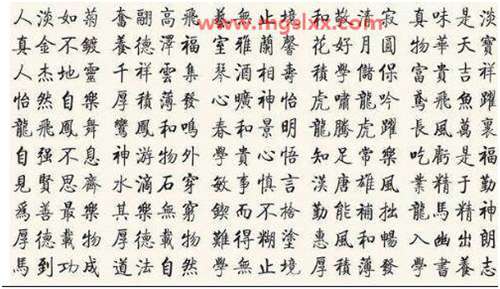 www.mgelxx.com
人淡如菊 奮翮高飛 藝無止境 和敬清寂 真味是淡
真金不鍍 養德澤福 室雅蘭馨 花好月圓 物華天寶
人杰地靈 千祥雲集 琴酒相壽 積學儲保 富貴吉祥
怡然自樂 厚積薄發 心曠神怡 虎嘯龍吟 鳶飛魚躍
龍飛鳳舞 鸞鳳和鳴 春和景明 龍騰虎躍 長風萬裏
自强不息 神游物外 學貴心悟 知足常樂 吃虧是福
見賢思齊 水滴石穿 敏事慎言 漢唐雄風 業精于勤
爲善最樂 其樂無窮 鍥而不捨 勤能補拙 龍馬精神
厚德載物 厚德載物 難得糊塗 惠風和暢 入幽出朗
馬到功成 道法自然 學無止境 厚積薄發 學書養志